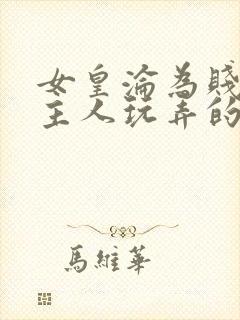 女皇淪為賤
主人玩弄的
馬維華